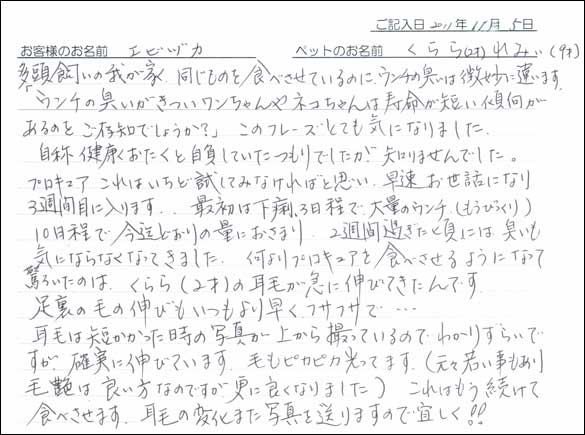 ご記入日 2011年 11月 5日
お客様のお名前 エビヅカ ペットのお名前 くらら(2才) れみぃ(9才)
多頭飼いの我が家、同じものを食べさせているのに、ウンチの臭いは微妙に違います。
「ウンチの臭いがきついワンちゃんやネコちゃんは寿命が短い傾向が
あるのをご存知でしょうか?」このフレーズとても気になりました。
自称健康おたくと自負していたつもりでしたが知りませんでした。
プロキュア これはいちど試してみなければと思い、早速お世話になり
3週間目に入ります。. 最初は下痢、3日程で大量のウンチ、(もうびっくり)
10日程で今迄どおりの量におさまり、2週間過ぎた頃には臭いも
気にならなくなってきました。何よりプロキュアを食べさせるようになって
驚いたのは、くらら(2才)の耳毛が急に伸びてきたんです。
足裏の毛の伸びもいつもより早くフサフサで・・・
耳毛は短かかった時の写真が上から撮っているのでわかりずらいで
すが、確実に伸びています。毛もピカピカ光ってます。(元々若い事もあり
毛艶は良い方なのですが更に良くなりました) これはもう続けて
食べさせます。耳毛の変化また写真を送りますので宜しく!!